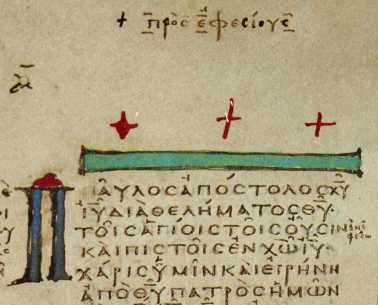 + πρὸς ἐφεσίους
ΠΑΥΛΟΣ ΑΠΟΣΤΟΛΟΣ ΧΥ
ΙΥ ΔΙΑ ΘΕΛΗΜΑΤΟΣ ΘΥ
ΤΟΙΣ ΑΓΙΟΙΣ ΤΟΙΣ ΟΥΣΙΝ ἐν ἐφέσω
ΚΑΙ ΠΙΣΤΟΙΣ ΕΝ ΧΩ ΙΥ
ΧΑΡΙΣ ΥΜΙΝ ΚΑΙ ΕΙΡΗΝΗ
ΑΠΟ ΘΥ ΠΑΤΡΟΣ ΗΜΩΝ